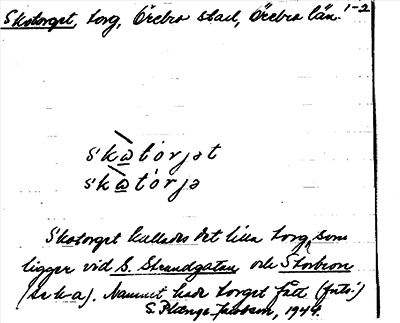 Skotorget, torg, Örebro stad, Örebro län. 1-2
sko̲tórjət
sko̲tórjə
Skotorget kallades det lilla torg, som
ligger vid S. Strandgatan och Storbron
( ). Namnet hade torget fått (förr.)
S. Jacobson, 1944.